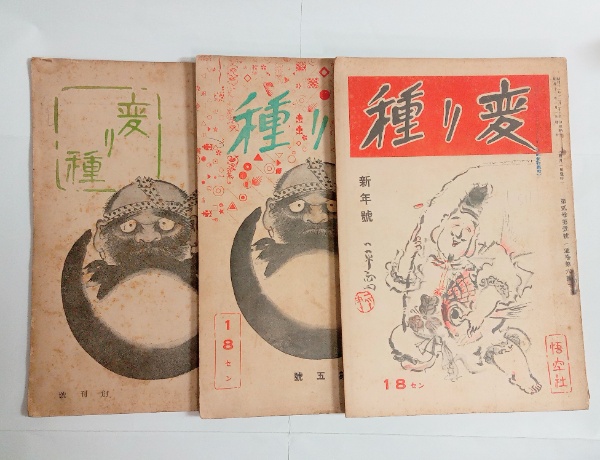 変り種
り種
18セン
五號
変り種
新年號
18セン
悟空社